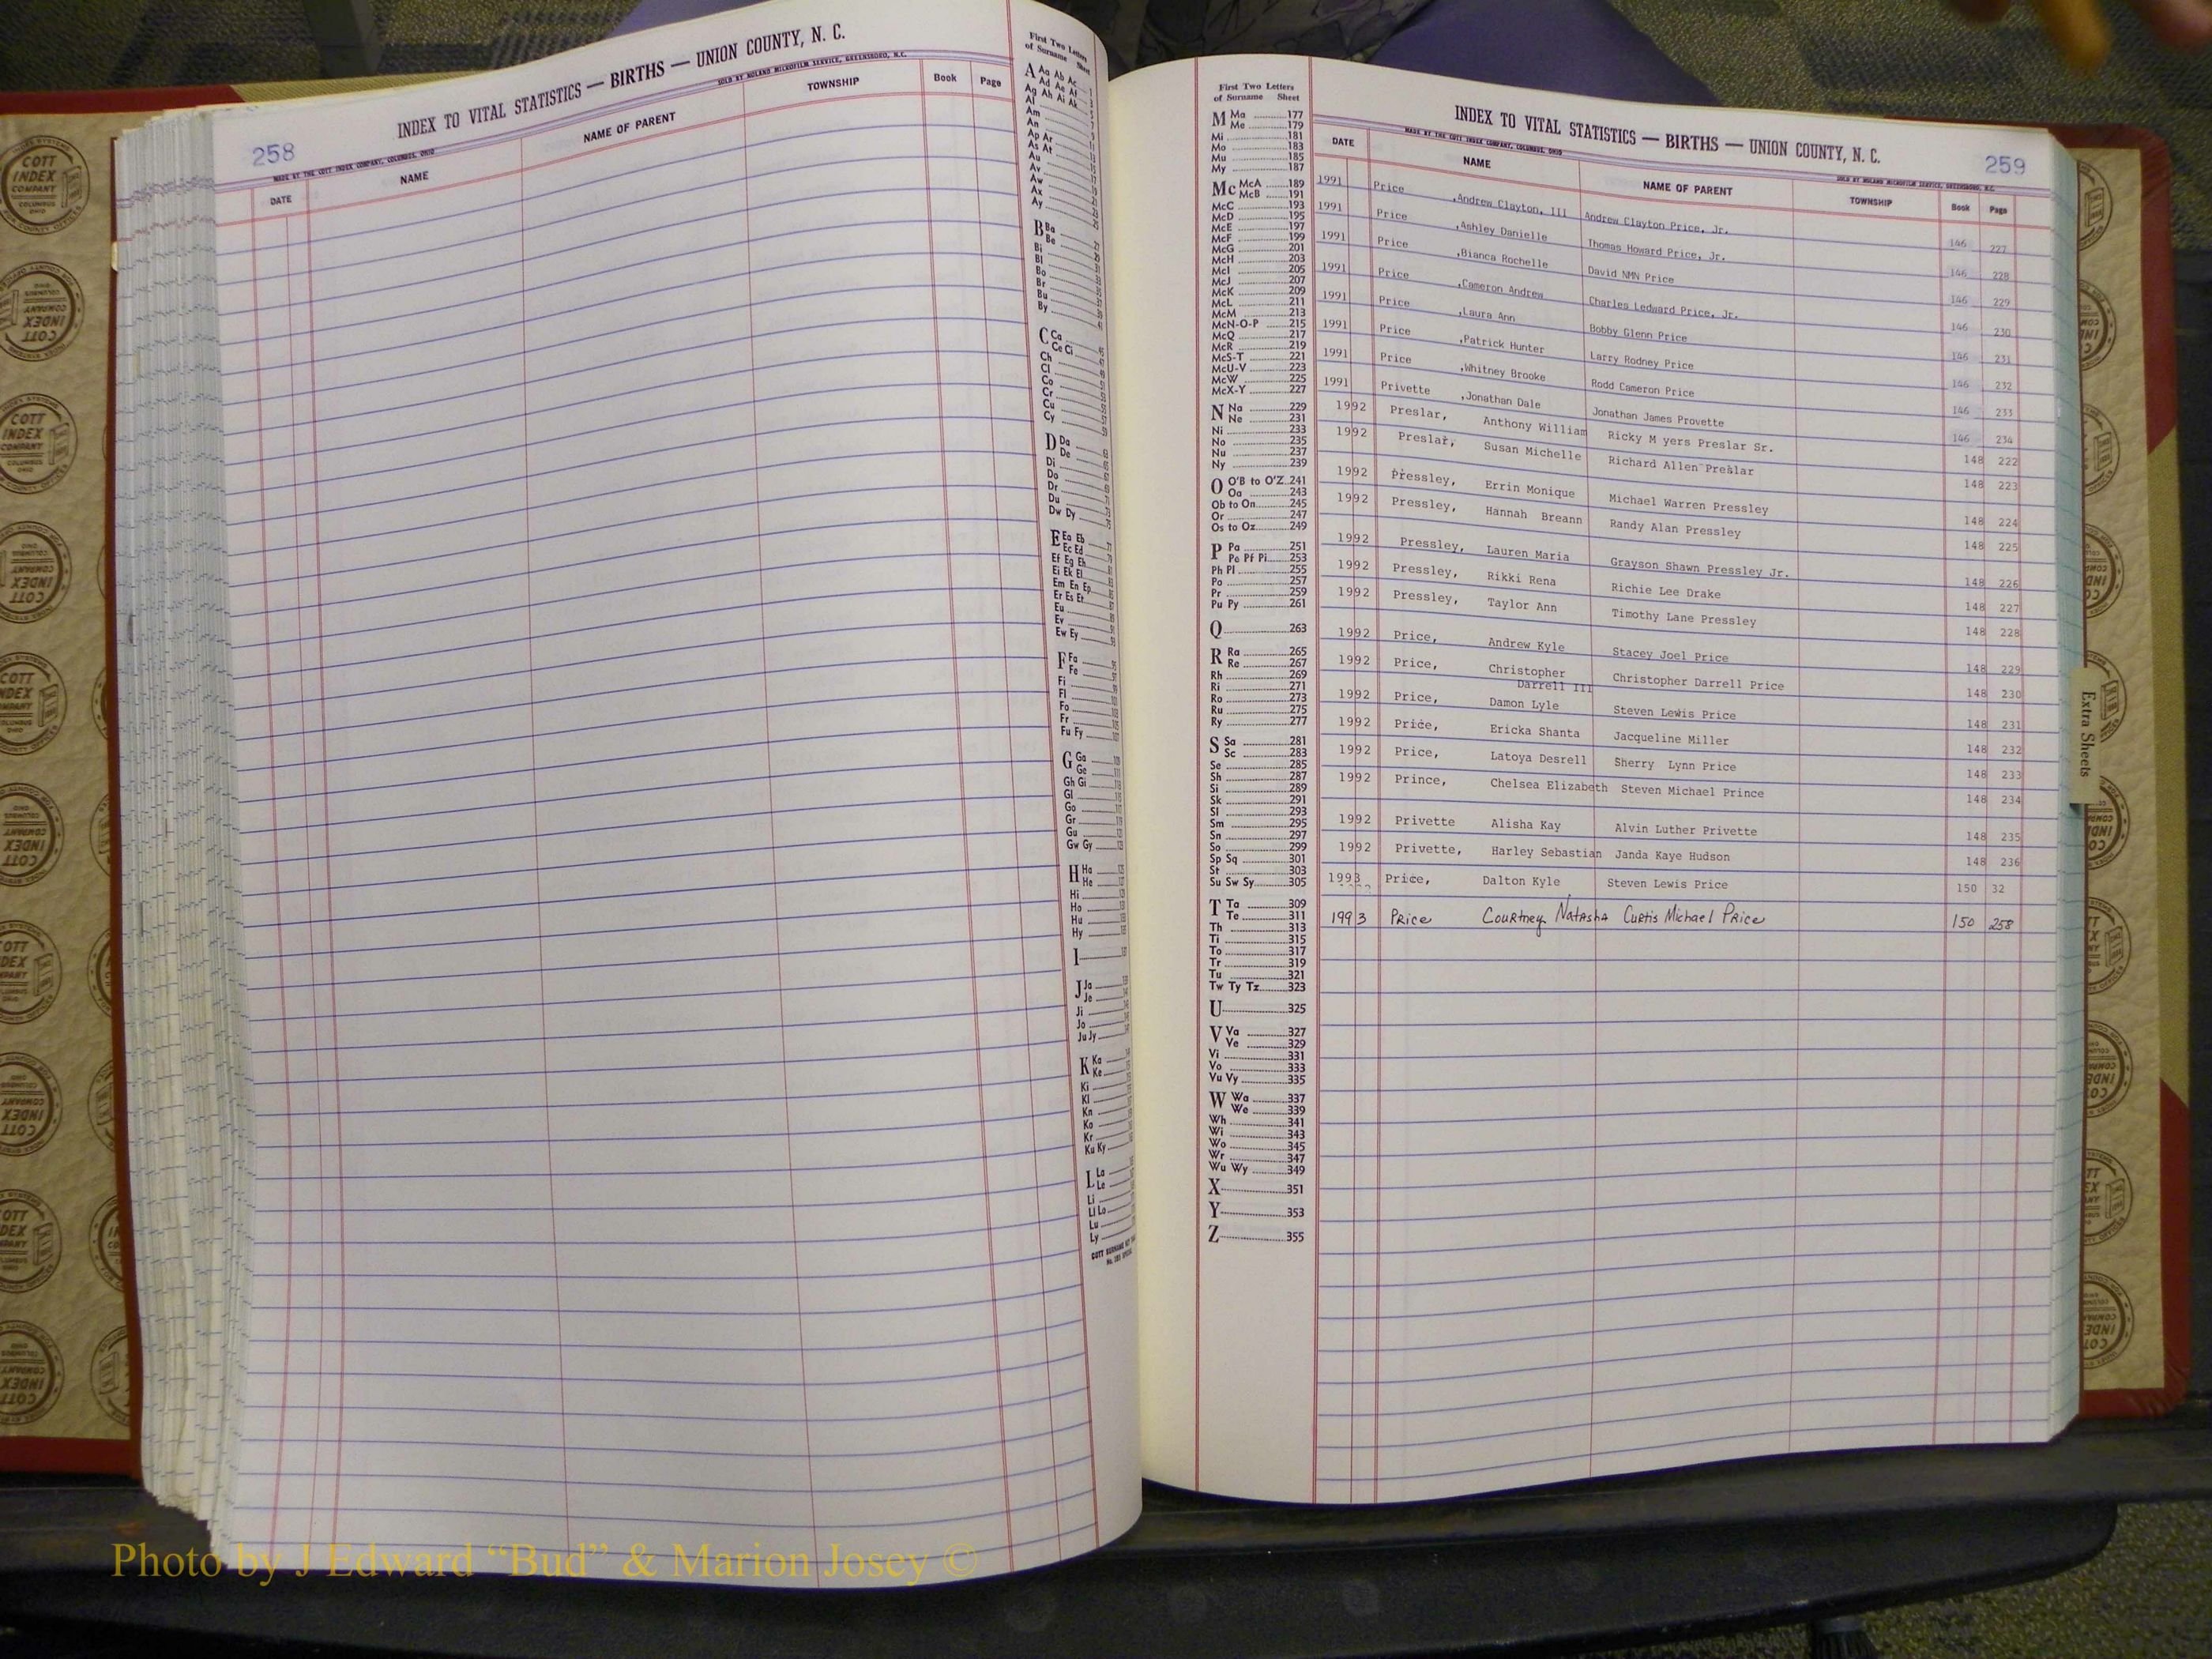 258
INDEX TO VITAL STATISTICS — BIRTHS — UNION COUNTY, N. C.
MADE BY THE COTT INDEX COMPANY, COLUMBUS, OHIO
SOLD BY NOLAND MICROFILM SERVICE, GREENSBORO, N.C.
DATE NAME NAME OF PARENT TOWNSHIP Book Page
First Two Letters
of Surname Sheet
A Aa Ab Ac
Ad Ae Af
Ag Ah Ai Ak
Al
Am
An
Ap Ar
As At
Au
Av
Aw
Ax
Ay
B Ba
Be
Bi
Bl
Bo
Br
Bu
By
C Ca
Ce Ci
Ch
Cl
Co
Cr
Cu
Cy
D Da
De
Di
Do
Dr
Du
Dw Dy
E Ea Eb
Ec Ed
Ef Eg Eh
Ei Ek El
Em En Ep
Er Es Et
Eu
Ev
Ew Ey
F Fa
Fe
Fi
Fl
Fo
Fr
Fu Fy
G Ga
Ge
Gh Gi
Gl
Go
Gr
Gu
Gw Gy
H Ha
He
Hi
Ho
Hu
Hy
I
J Ja
Je
Ji
Jo
Ju Jy
K Ka
Ke
Ki
Kl
Kn
Ko
Kr
Ku Ky
L La
Le
Li
Ll Lo
Lu
Ly
First Two Letters
of Surname Sheet
M Ma 177
Me 179
Mi 181
Mo 183
Mu 185
My 187
Mc McA 189
McB 191
McC 193
McD 195
McE 197
McF 199
McG 201
McH 203
McI 205
McJ 207
McK 209
McL 211
McM 213
McN-O-P 215
McQ 217
McR 219
McS-T 221
McU-V 223
McW 225
McX-Y 227
N Na 229
Ne 231
Ni 233
No 235
Nu 237
Ny 239
O O'B to O'Z 241
Oa 243
Ob to On 245
Or 247
Os to Oz 249
P Pa 251
Pe Pf Pi 253
Ph Pl 255
Po 257
Pr 259
Pu Py 261
Q 263
R Ra 265
Re 267
Rh 269
Ri 271
Ro 273
Ru 275
Ry 277
S Sa 281
Sc 283
Se 285
Sh 287
Si 289
Sk 291
Sl 293
Sm 295
Sn 297
So 299
Sp Sq 301
St 303
Su Sw Sy 305
T Ta 309
Te 311
Th 313
Ti 315
To 317
Tr 319
Tu 321
Tw Ty Tz 323
U 325
V Va 327
Ve 329
Vi 331
Vo 333
Vu Vy 335
W Wa 337
We 339
Wh 341
Wi 343
Wo 345
Wr 347
Wu Wy 349
X 351
Y 353
Z 355
INDEX TO VITAL STATISTICS — BIRTHS — UNION COUNTY, N. C.
259
MADE BY THE COTT INDEX COMPANY, COLUMBUS, OHIO
SOLD BY NOLAND MICROFILM SERVICE, GREENSBORO, N.C.
DATE NAME NAME OF PARENT TOWNSHIP Book Page
1991 Price ,Andrew Clayton, III Andrew Clayton Price, Jr. 146 227
1991 Price ,Ashley Danielle Thomas Howard Price, Jr. 146 228
1991 Price ,Bianca Rochelle David NMN Price 146 229
1991 Price ,Cameron Andrew Charles Ledward Price, Jr. 146 230
1991 Price ,Laura Ann Bobby Glenn Price 146 231
1991 Price ,Patrick Hunter Larry Rodney Price 146 232
1991 Price ,Whitney Brooke Rodd Cameron Price 146 233
1991 Privette ,Jonathan Dale Jonathan James Provette 146 234
1992 Preslar, Anthony William Ricky M yers Preslar Sr. 148 222
1992 Preslar, Susan Michelle Richard Allen Preslar 148 223
1992 Pressley, Errin Monique Michael Warren Pressley 148 224
1992 Pressley, Hannah Breann Randy Alan Pressley 148 225
1992 Pressley, Lauren Maria Grayson Shawn Pressley Jr. 148 226
1992 Pressley, Rikki Rena Richie Lee Drake 148 227
1992 Pressley, Taylor Ann Timothy Lane Pressley 148 228
1992 Price, Andrew Kyle Stacey Joel Price 148 229
1992 Price, Christopher Christopher Darrell Price 148 230
Darrell III
1992 Price, Damon Lyle Steven Lewis Price 148 231
1992 Price, Ericka Shanta Jacqueline Miller 148 232
1992 Price, Latoya Desrell Sherry Lynn Price 148 233
1992 Prince, Chelsea Elizabeth Steven Michael Prince 148 234
1992 Privette Alisha Kay Alvin Luther Privette 148 235
1992 Privette, Harley Sebastian Janda Kaye Hudson 148 236
1993 Price, Dalton Kyle Steven Lewis Price 150 32
1993 Price Courtney Natasha Curtis Michael Price 150 258
Extra Sheets
COTT
INDEX
COMPANY
COLUMBUS
OHIO
Photo by J Edward “Bud” & Marion Josey ©